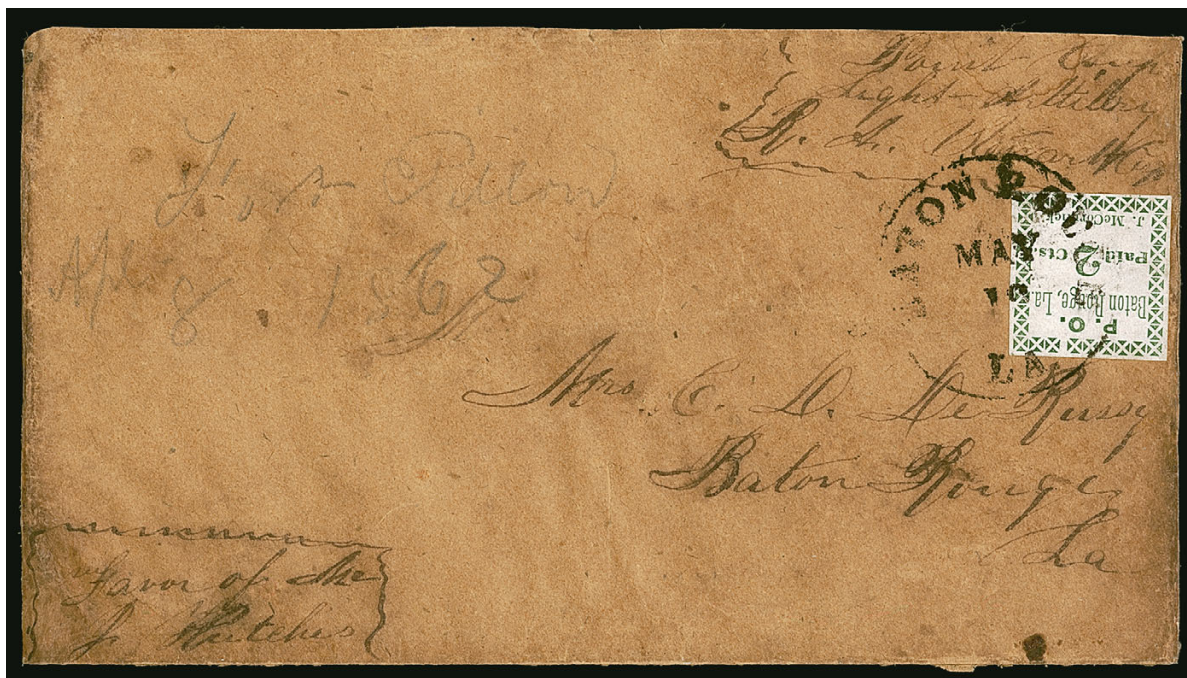 Point Coup
Light Artillery
R. A.
Fort Pillow
Apl. 8. 1862
BATON ROUGE
MAY
LA
P. O.
Baton Rouge, La.
2
Paid Cts.
J. McCormick
Mrs. E. D. De Russy
Baton Rouge
La
Favor of Mr
J. Hutches